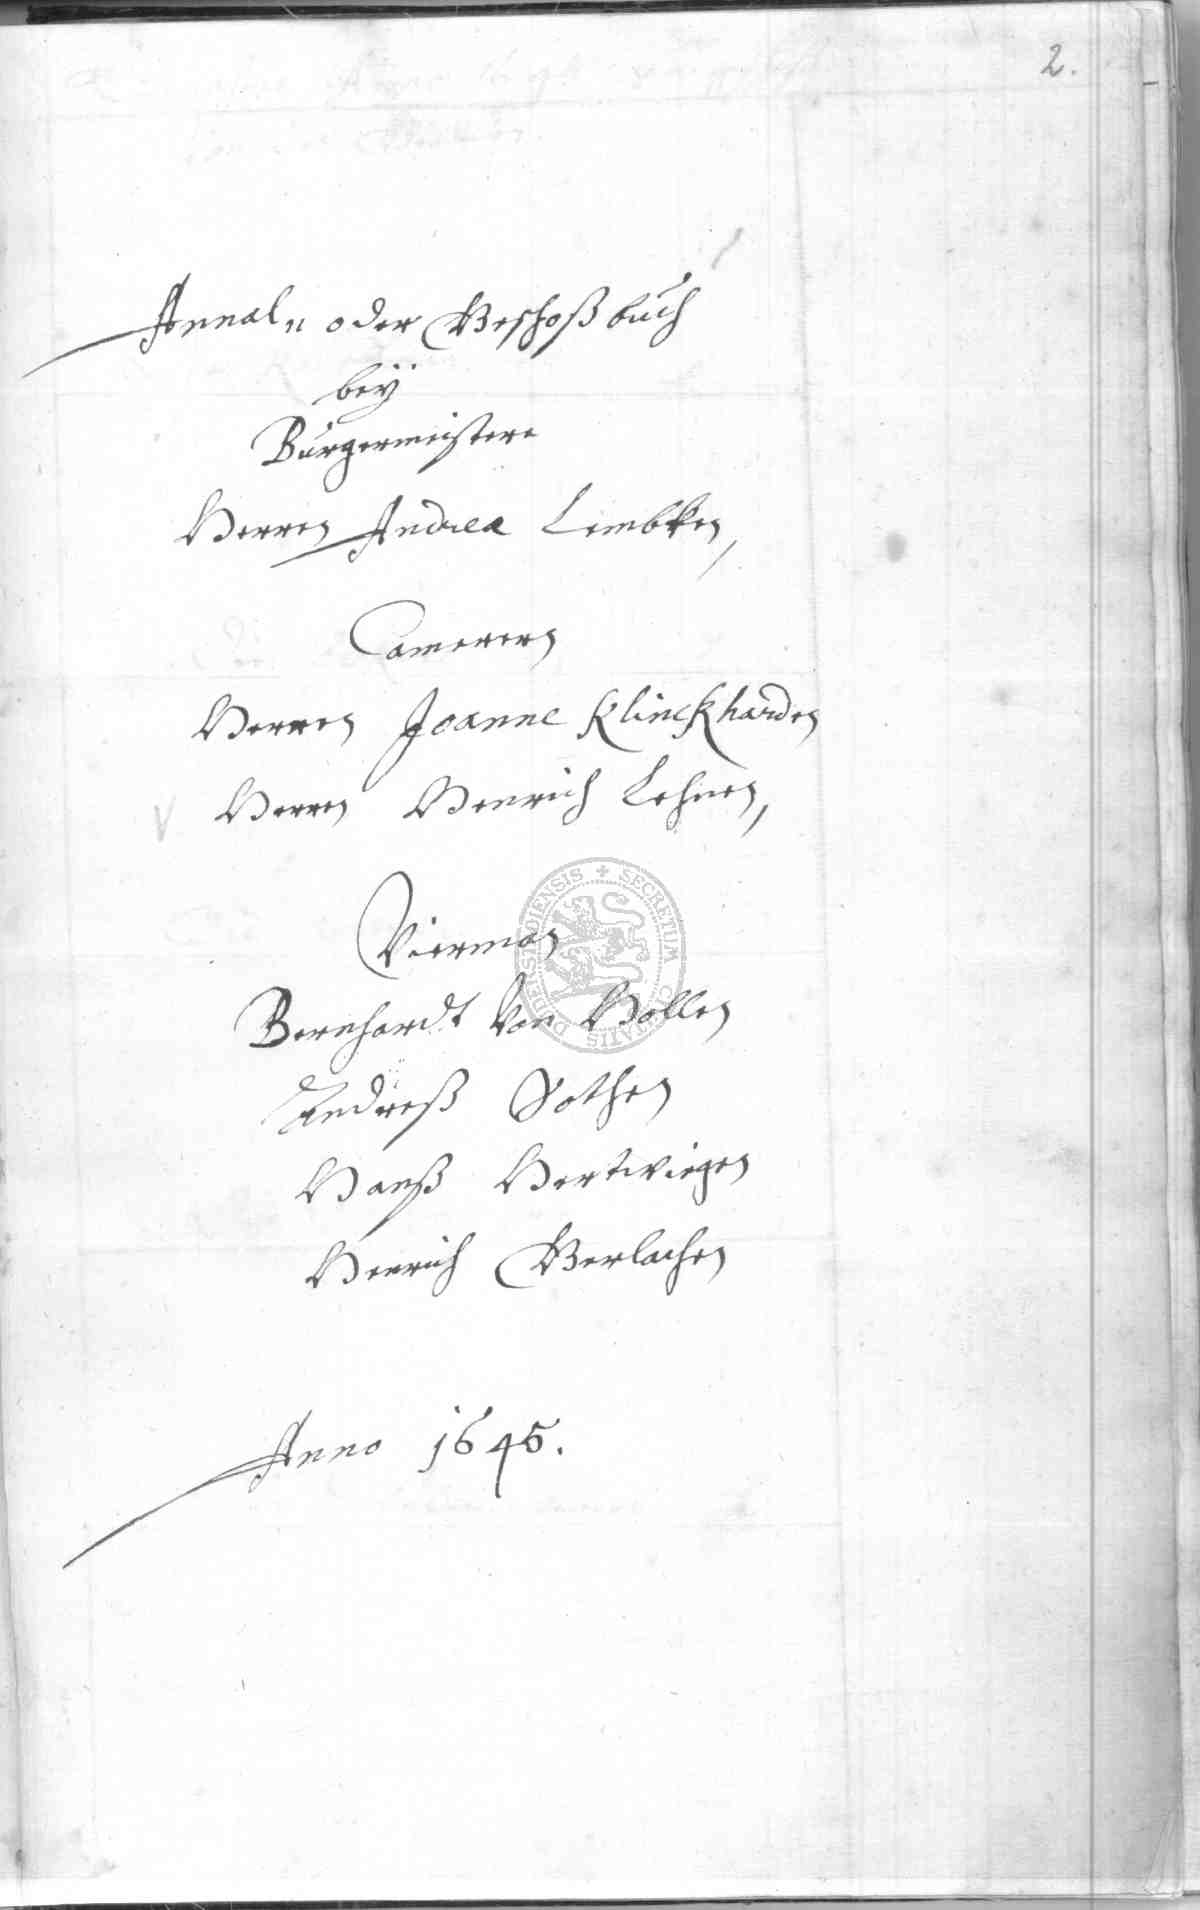 2.
Annal„ oder Geschoßbuch
beÿ
Burgermeistere
Herren Andrea Lembken,
Camerern
Herren Joanne Klinckharden
Herren Henrich Lehnen,
Vierman
Bernhardt Von Hollen
Andreß Sothen
Hanß Hertwiegen
Henrich Gerlachen
Anno 1645.
SECRETUM CIVITATIS DUDERSTADIENSIS